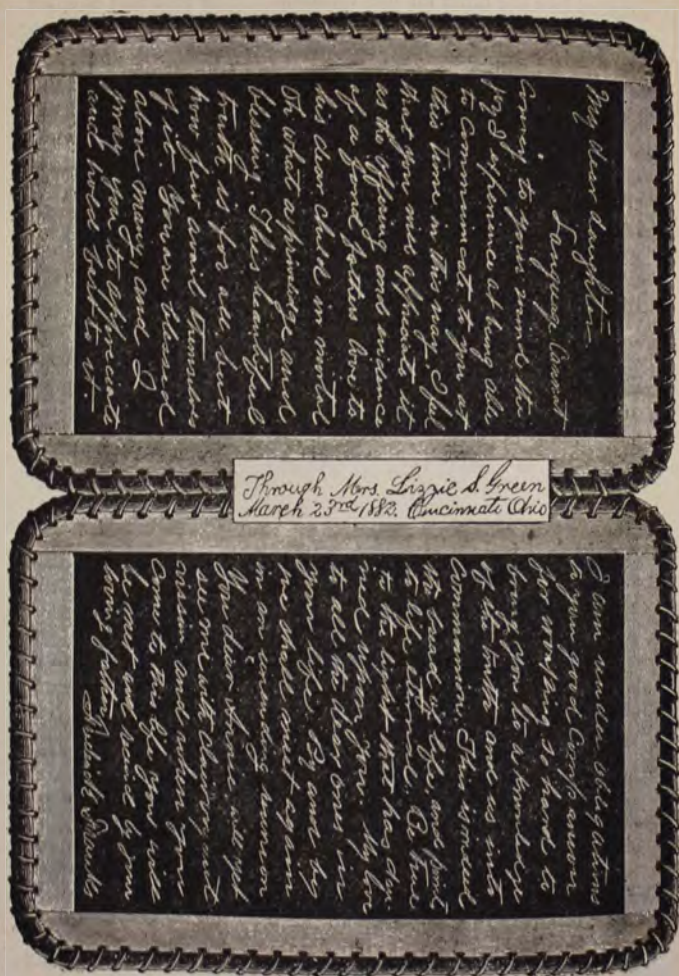 My dear daughter
Language Cannot
convey to your mind the
joy I experience at being able
to communicate to you at
this time in this way. I feel
that you will appreciate it
as the offering and evidence
of a fond fathers love to
his dear child in mortal
Oh what a priviledge and
blessing This beautiful
truth is for all but
how few avail themselves
of it. You are blessed
above many, and I
pray you to appreciate
and hold fast to it—
Through Mrs. Lizzie S. Green
March 23rd 1882. Cincinnati Ohio
I am under obligations
to your good companion
for working so hard to
bring you to a knowledge
of the truth and us into
communion. This is indeed
the bread of life, and points
to life eternal. Be true
to the light that has
upon you. My love
to all the dear ones in
your life By and by
we shall meet again
in an unending summer
You dear will yet
see me with
vision and when you
come to this life you will
be met and by your
loving father